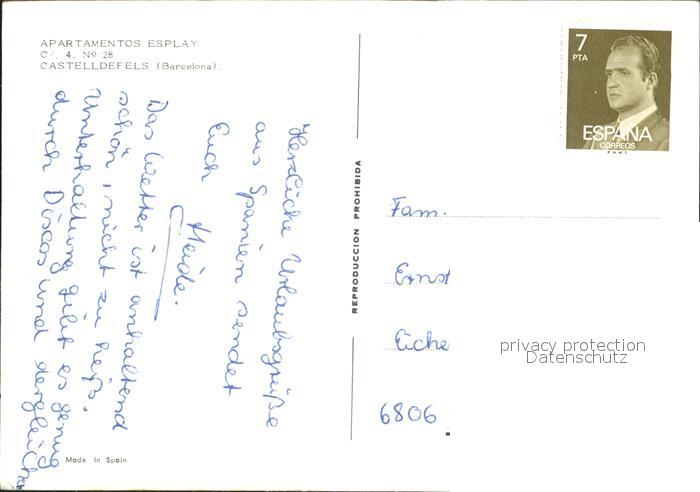 APARTAMENTOS ESPLAY
C/. 4, Nº 28
CASTELLDEFELS (Barcelona).
Herzliche Urlaubsgrüße
aus Spanien sendet
Euch
Heide.
Das Wetter ist anhaltend
schön, nicht zu heiß.
Unterhaltung gibt es genug
durch Discos und dergleich
Made in Spain
REPRODUCCION PROHIBIDA
7
PTA
ESPAÑA
CORREOS
F.N.M.T.
Fam.
Ernst
Eiche
6806
privacy protection
Datenschutz